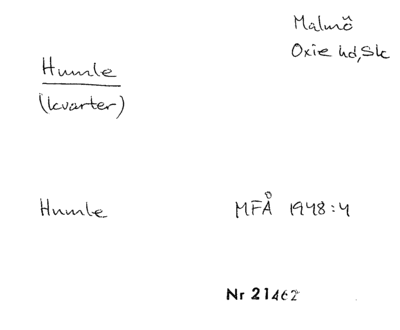 Malmö
Oxie hd, Sk
Humle
(kvarter)
Humle MFÅ 1948:4
Nr 21462